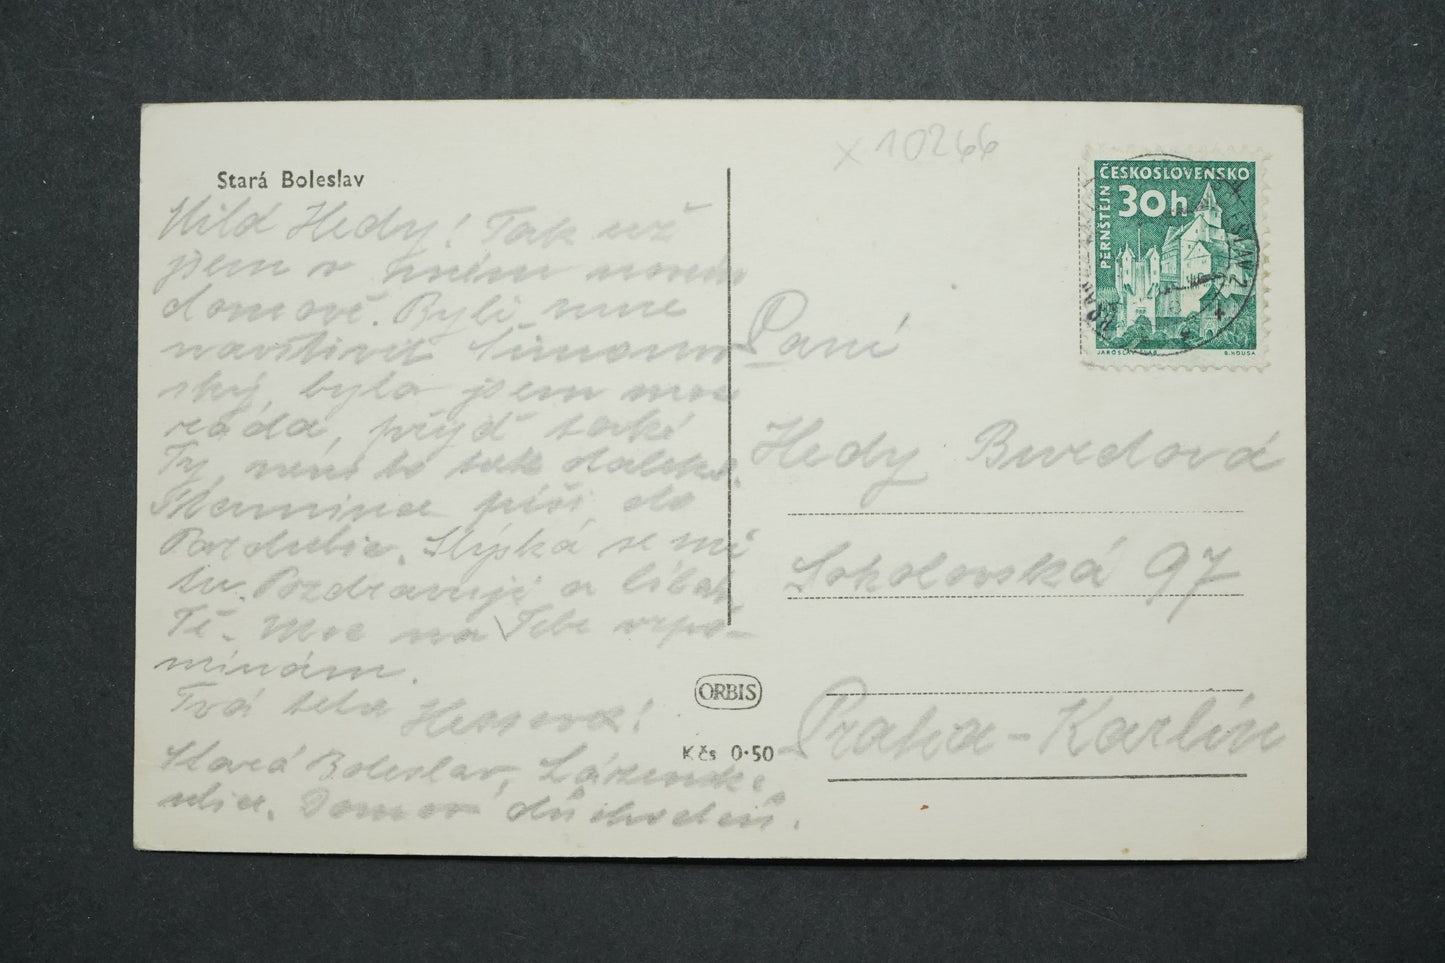 x 10266
Stará Boleslav
ČESKOSLOVENSKO
30h
PERNŠTEJN
JAROSLAV
B. HOUSA
Milá Hedy! Tak už
jsem v novém
domově. Byli mne
navštívit Šimonov
ský, byla jsem moc
ráda, přijď také
Ty, není to tak daleko.
Mamince píši do
Pardubic. Stýská se mi
tu. Pozdravuji a líbám
Tě. Moc na Tebe vzpo-
mínám.
Tvá teta
Stará Boleslav, Lázeňská
ulice. Domov důchodců.
Paní
Hedy
Sokolovská 97
Praha-Karlín
ORBIS
Kčs 0·50